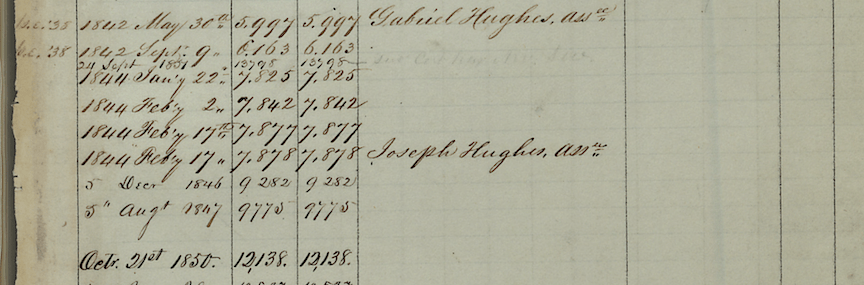 '38 1842 May 30th 5.997 5.997 Gabriel Hughes, assee
'38 1842 Sept. 9„ 6.163 6.163
24 Sept 1851 13798 13798
1844 Jan'y 22„ 7.825 7.825
1844 Feb'y 2„ 7.842 7.842
1844 Feb'y 17th 7.877 7.877
1844 Feb'y 17„ 7.878 7.878 Joseph Hughes, assee
5 Decr 1846 9282 9282
5" Augt 1847 9775 9775
Octr. 21st 1850. 12,138. 12,138.